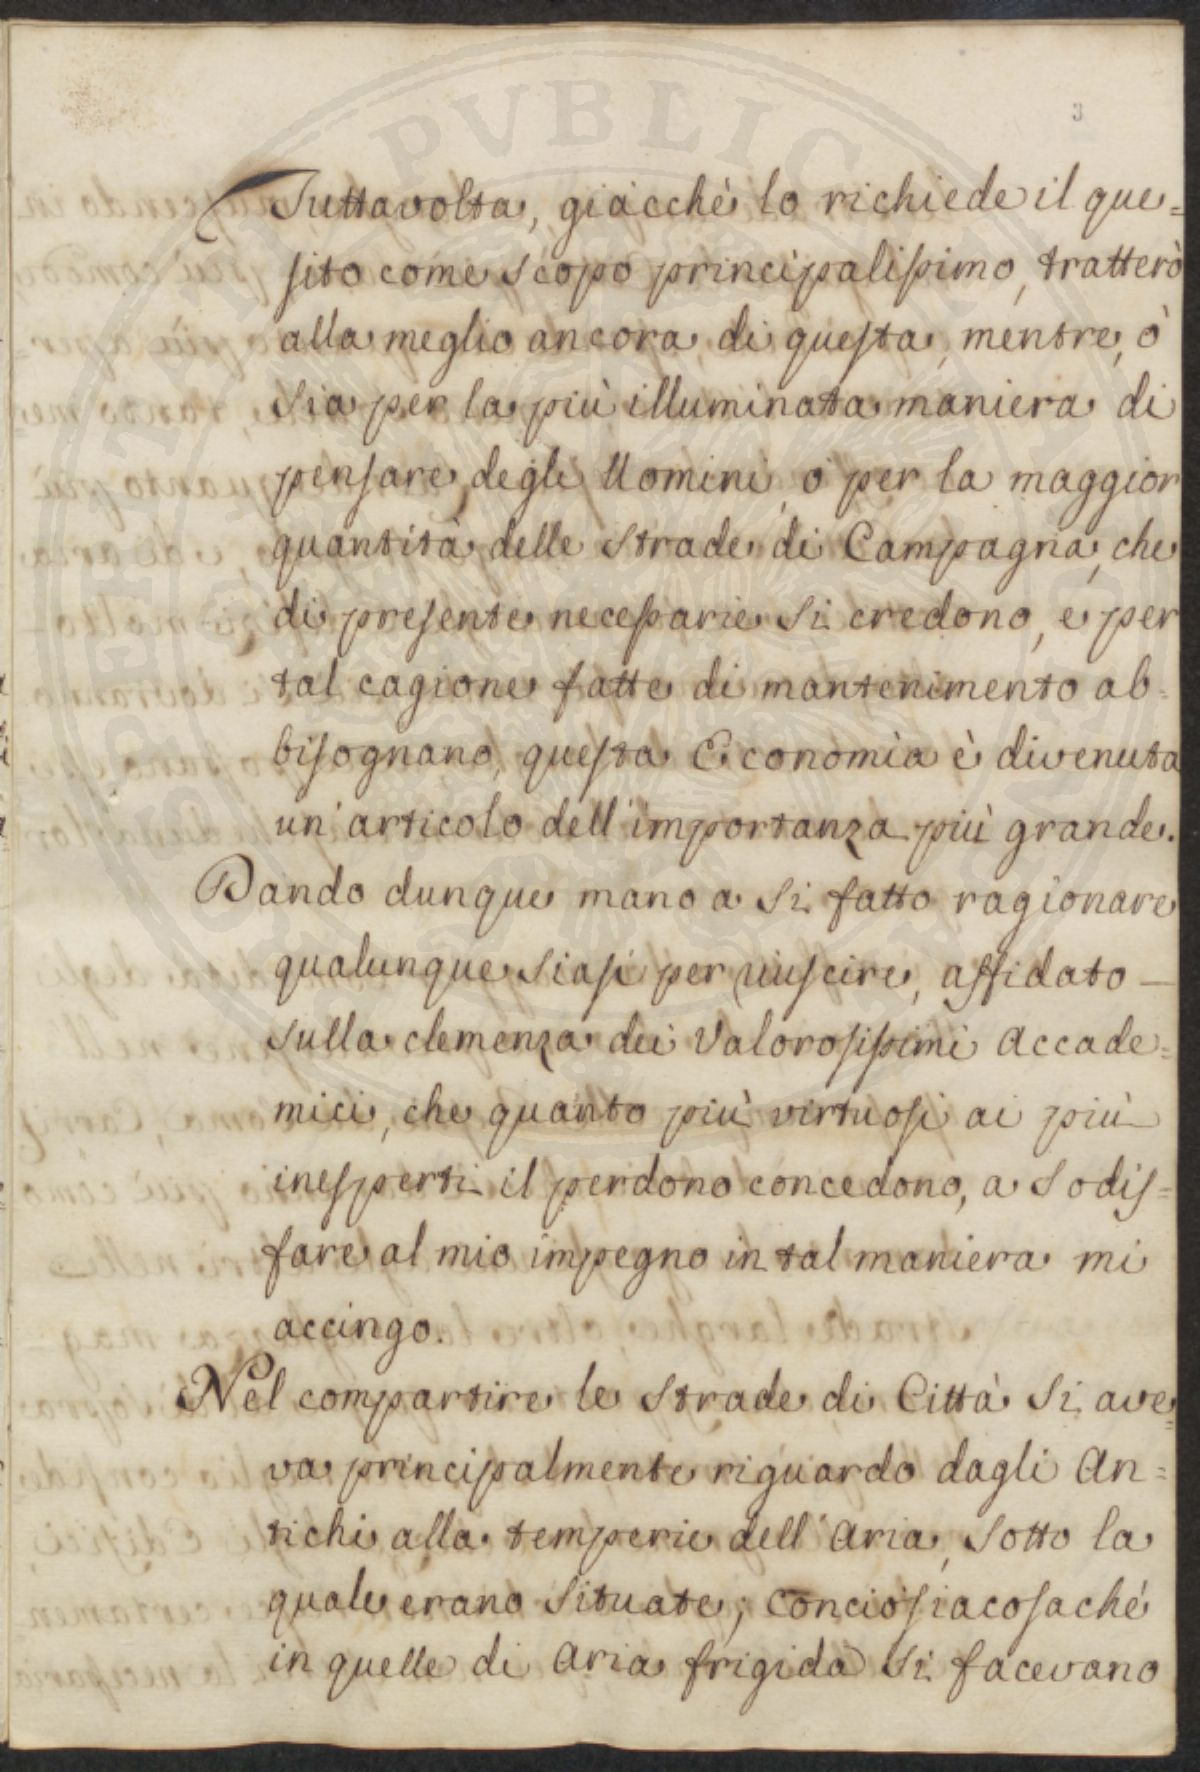 3
Tuttavolta, giacchè lo richiede il que=
sito come scopo principalissimo, tratterò
alla meglio ancora di questa, mentre, ò
sia per la più illuminata maniera di
pensare degli Uomini, o per la maggior
quantità delle Strade di Campagna, che
di presente necessarie si credono, e per
tal cagione fatte di mantenimento ab=
bisognano, questa Economìa è divenuta
un'articolo dell'importanza più grande.
Dando dunque mano a si fatto ragionare
qualunque siasi per riuscire, affidato —
sulla clemenza dei Valorosissimi Accade=
mici, che quanto più virtuosi ai più
inesperti il perdono concedono, a sodis=
fare al mio impegno in tal maniera mi
accingo.
Nel compartire le Strade di Città si ave=
va principalmente riguardo dagli An=
tichi alla temperie dell'Aria, sotto la
quale erano situate; conciosiacosachè
in quelle di Aria frigida si facevano